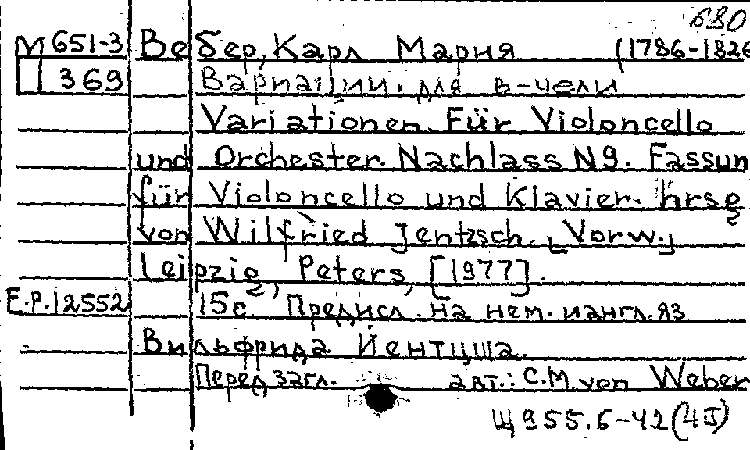 680
М 651-3 Вебер, Карл Мария (1786-1826
369 Вариации для в-чели
Variationen für Violoncello
und Orchester. Nachlass N9. Fassun
für Violoncello und Klavier. hrsg
von Wilfried Jentzsch. [Vorw.]
Leipzig, Peters, [1977].
E.P.12552 15с. Предисл. на нем. и англ. яз
Вильфрида Йентцша.
Перед загл. авт.: C.M von Weber
Щ955.6-42(4Г)